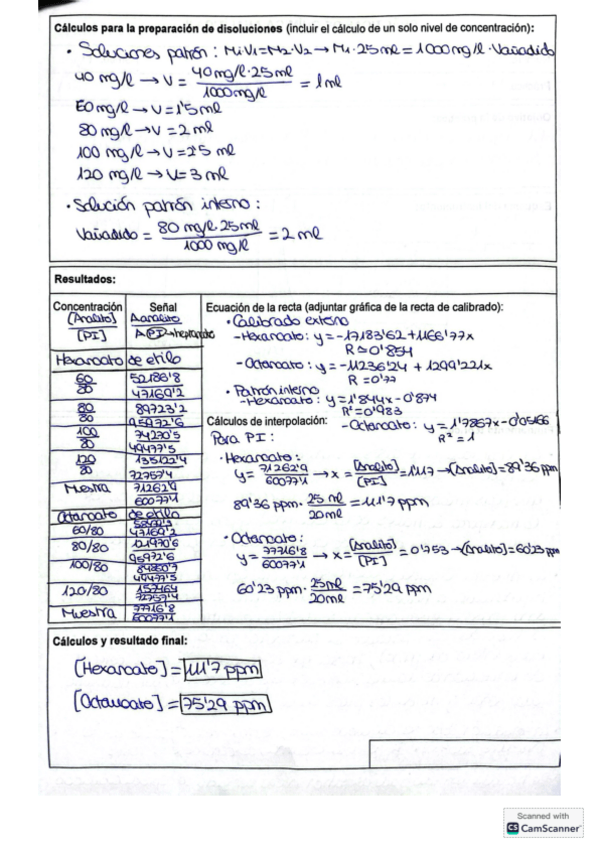 Cálculos para la preparación de disoluciones (incluir el cálculo de un solo nivel de concentración):
• Soluciones patrón : M1·V1=M2·V2 → M1·25ml = 1000mg/l·Vañadido
40 mg/l → V = 40mg/l·25ml / 1000mg/l = 1ml
60 mg/l → V = 1'5ml
80 mg/l → V = 2 ml
100 mg/l → V = 2'5 ml
120 mg/l → V = 3 ml
• Solución patrón interno :
Vañadido = 80 mg/l·25ml / 1000 mg/l = 2 ml
Resultados:
Concentración
[Analito]
[PI]
Señal
A analito
A PI → heptanoato
Hexanoato de etilo
60/80
52186'8 / 47169'2
80/80
89723'2 / 95972'6
100/80
74270'5 / 49477'5
120/80
135122'4 / 72757'4
Muestra
71262'9 / 60077'1
Octanoato de etilo
60/80
47169'2
80/80
121970'6 / 95972'6
100/80
84850'7 / 49477'5
120/80
157464 / 72757'4
Muestra
77716'8 / 60077'1
Ecuación de la recta (adjuntar gráfica de la recta de calibrado):
• Calibrado externo
- Hexanoato: y = -17183'62 + 1166'77x
R = 0'854
- Octanoato: y = -11236'24 + 1299'221x
R = 0'77
• Patrón interno
- Hexanoato: y = 1'844x - 0'874
R² = 0'983
Cálculos de interpolación:
- Octanoato: y = 1'7867x - 0'05166
R² = 1
Para PI :
• Hexanoato :
y = 71262'9 / 60077'1 → x = [Analito] / [PI] = 1'117 → [Analito] = 89'36 ppm
89'36 ppm · 25 ml / 20ml = 111'7 ppm
• Octanoato :
y = 77716'8 / 60077'1 → x = [Analito] / [PI] = 0'753 → [Analito] = 60'23 ppm
60'23 ppm · 25ml / 20ml = 75'29 ppm
Cálculos y resultado final:
[Hexanoato] = 111'7 ppm
[Octanoato] = 75'29 ppm
Scanned with
CS CamScanner